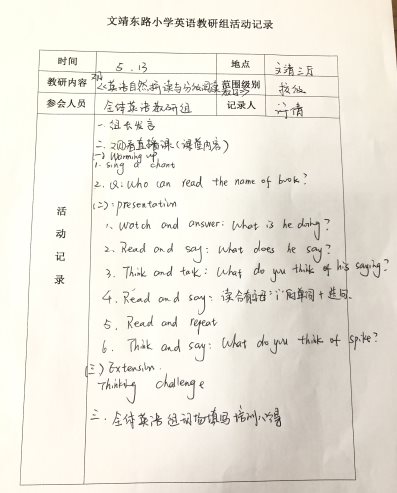 文靖东路小学英语教研组活动记录
时间 5.13 地点 文靖三万
教研内容 观《英语自然拼读与分级阅读》 范围级别 校级
参会人员 全体英语教研组 记录人 许倩
活动记录
一.组长发言
二.观看直播课(课堂内容)
(一) Warming up
1. sing a chant
2. Q: Who can read the name of book?
(二): presentation
1. Watch and answer: What is he doing?
2. Read and say: What does he say?
3. Think and talk: What do you think of his saying?
4. Read and say: 读含有字母"i"的单词+造句.
5. Read and repeat
6. Think and say: What do you think of spike?
(三) Extension.
Thinking challenge
三.全体英语组词填写培训心得